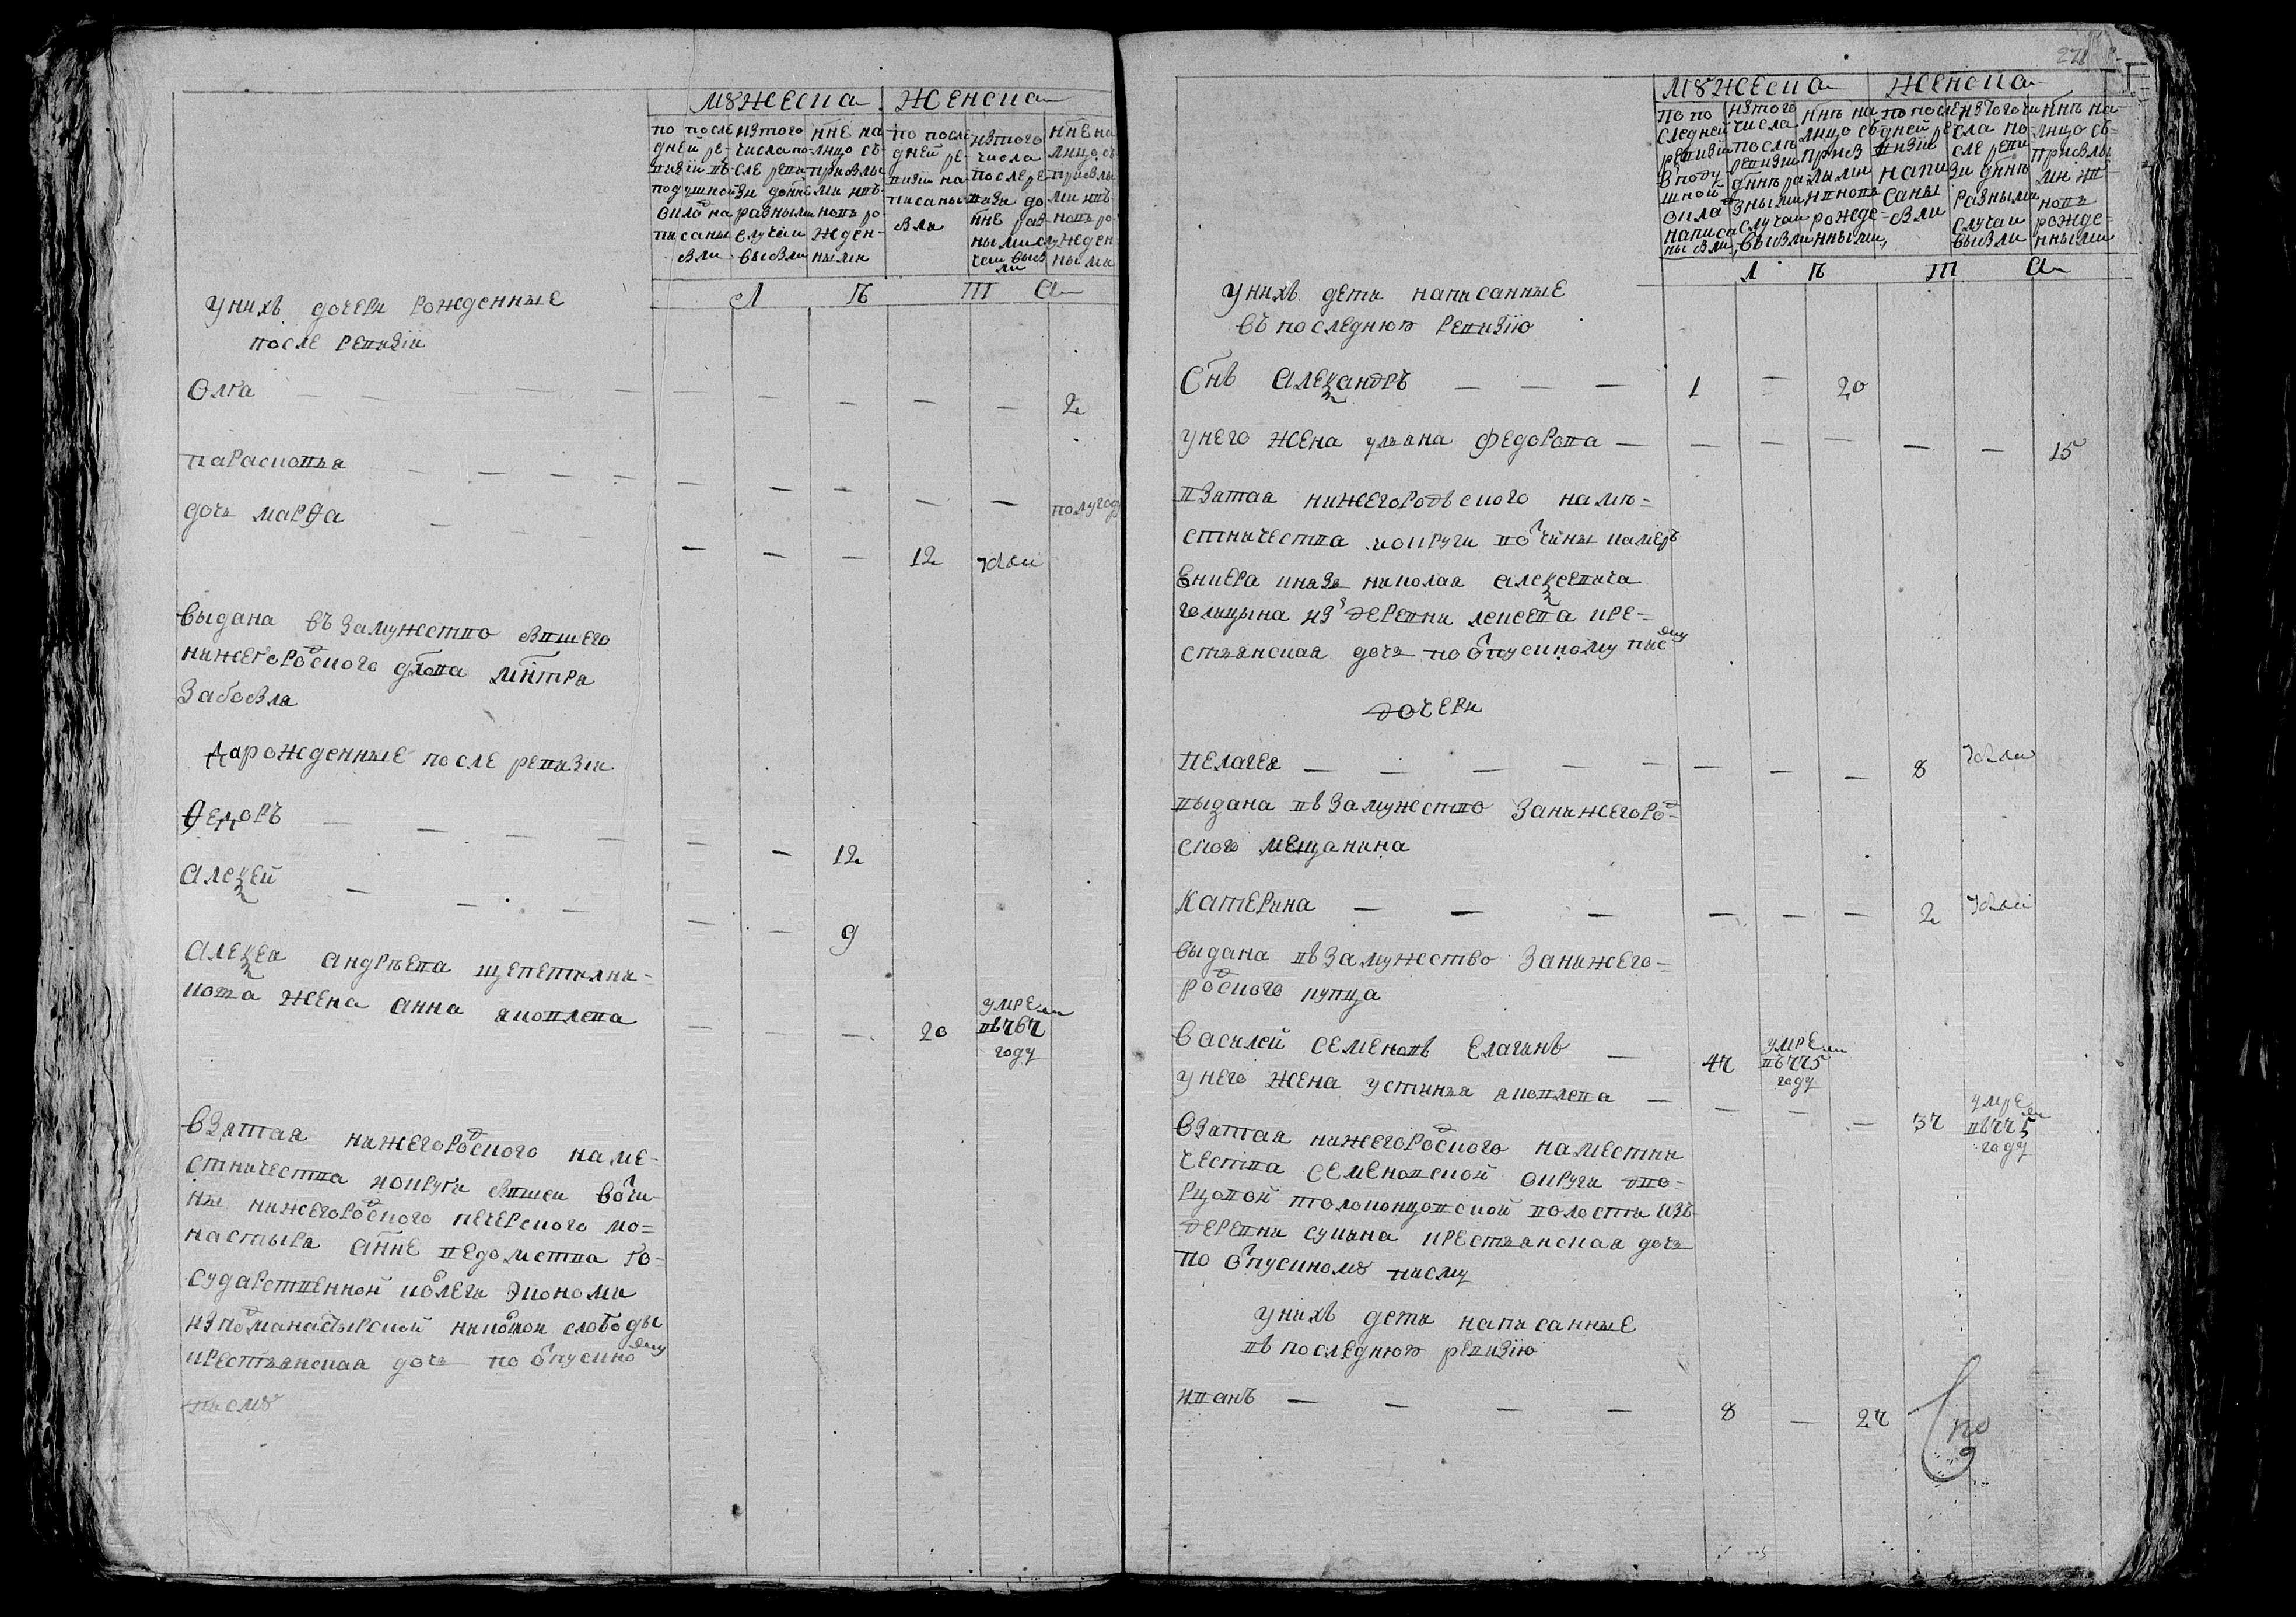 мужеска женска
по после дней ревизiи въ подушной окладъ написаны были
изъ того числа после ревизiи до нне разными случаи выбыли
нне на лицо съ прибылыми и вновь рожденными
по после дней ревизiи написаны были
изъ того числа после ревизiи до нне разными случаи выбыли
нне на лицо съ прибылыми и вновь рожденными
л в т а
у нихъ дочери рожденные
после ревизiи
Олга — — — — — — — — — 2
парасковья — — — — — — — — полугоду
дочь марѳа — — — — — 12
выдана въ замужство бвшего
нижегородского
Забобла
рожденные после ревизiи
Ѳедоръ — — — — — — 12
алексей — — — — — 9
алексея андръева щепетилни-
кова жена анна яковлева — — — 20 умре в 767 году
взятая нижегородского наме-
стничества
ны нижегородского печерского мо=
настыря анне ведомства го-
сударственной колеги экономи
слободы
крестьянская дочь по отпускному
писму
271
мужеска женска
по последней ревизiи в подушной окладъ написаны были
изъ того числа после ревизiи до ннъ разными случаи выбыли
ннъ на лицо съ прибылыми и вновь рожденными
по последней ревизiи написаны были
изъ того числа после ревизiи до ннъ разными случаи выбыли
ннъ на лицо съ прибылыми и вновь рожденными
л в т а
у нихъ дети написанные
въ последнюю ревизiю
Снъ александръ — — — 1 — 20
у него жена ульяна федорова — — — — — — 15
взятая нижегородского намѣ=
стничества
князь николая алексеевича
голицына из деревни кре=
стьянская дочь по отпускному писму
дочери
пелагея — — — — — — — — 8
выдана въ замужство за нижегород=
ского мещанина
катерина — — — — — — 2
выдана въ замужство за нижего=
родского купца
василей семеновъ елагинъ — 47 умре въ 775 году
у него жена устинья яковлева — — — — 37 умре въ 775 году
взятая нижегородского наместни
чества семеновской округи дво-
рцовой толоконцовской волости изъ
деревни крестьянская дочь
по отпускному писму
у нихъ дети написанные
въ последнюю ревизiю
иванъ — — — — 8 — 27
по